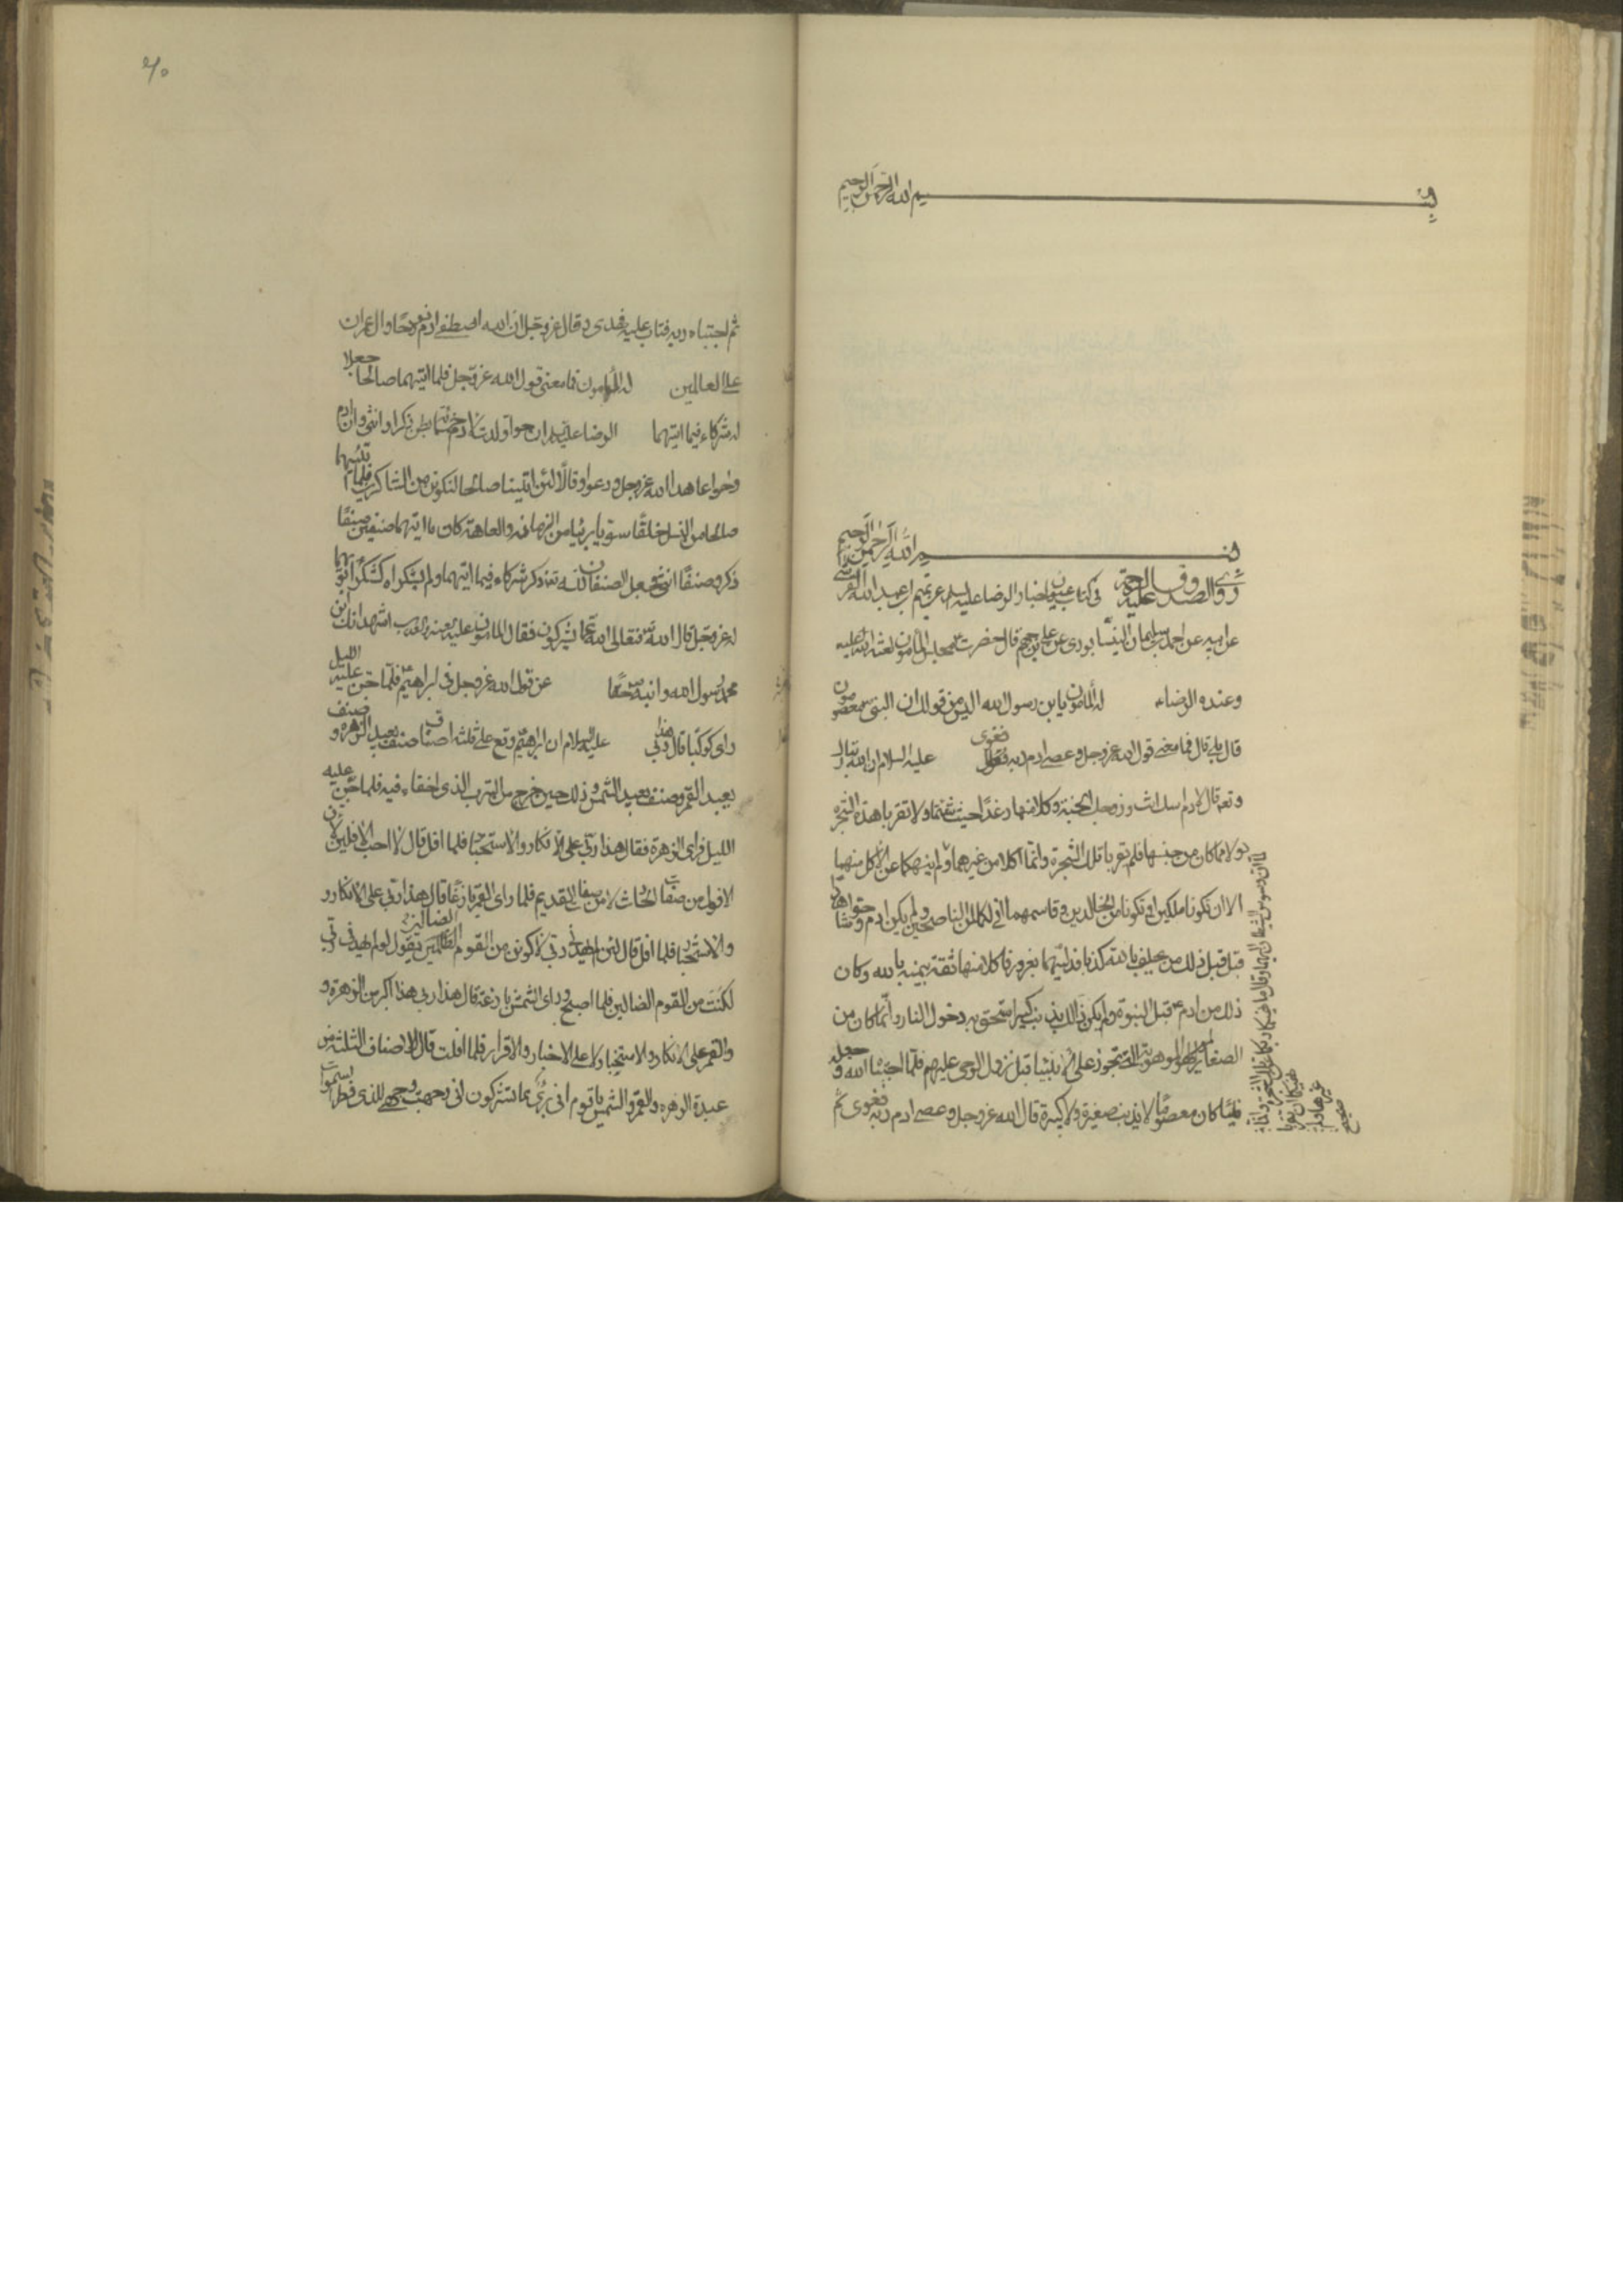 بسم الله الرحمن الرحيم
بسم الله الرحمن الرحيم
روى الصدوق عليه الرحمة في كتاب عيون اخبار الرضا عليه السلام عن تميم بن عبد الله القرشي
عن ابيه عن احمد بن سليمان النيشابوري عن علي بن جهم قال حضرت مجلس المأمون لعنة الله عليه
وعنده الرضاء له المأمون يا بن رسول الله اليس من قولك ان النبي معصومون
قال بلى قال فما معنى قول الله عز وجل وعصى ادم ربه فغوى عليه السلام ان الله تبارك
وتع قال لادم اسكن انت وزوجك الجنة وكلا منها رغدا حيث شئتما ولا تقربا هذه الشجرة
ولا مما كان من جنسها فلم تقربا تلك الشجرة وانما اكلا من غيرهما ولم انهكما عن الاكل منها
الا ان تكونا ملكين او تكونا من الخالدين وقاسمهما اني لكما لمن الناصحين ولم يكن ادم وحوا شاهدا
قبل ذلك من يحلف بالله كذبا فدليهما بغرور فاكلا منها ثقة بيمينه بالله وكان
ذلك من ادم قبل النبوة ولم يكن ذلك بذنب كبير استحق به دخول النار وانما كان من
الصغاير الموهوبة التي تجوز على الانبياء قبل نزول الوحي عليهم فلما اجتباه الله وجعله
نبيا كان معصوما لا يذنب صغيرة ولا كبيرة قال الله عز وجل وعصى ادم ربه فغوى ثم
ثم اجتباه ربه فتاب عليه فهدى وقال عز وجل ان الله اصطفى ادم ونوحا وال عمران
على العالمين له المأمون فما معنى قول الله عز وجل فلما اتيهما صالحا جعلا
له شركاء فيما اتيهما الرضا عليه ان حوا ولدت لادم خمسمائة بطن ذكرا وانثى وان ادم
وحوا عاهدا الله عز وجل ودعوا وقالا لئن اتيتنا صالحا لنكونن من الشاكرين فلما اتيهما
صالحا من النسل خلقا سويا بريئا من الزمانه والعاهة كان ما اتيهما صنفين صنفا
ذكر وصنفا انثى فجعل الصنفان لله تع ذكره شركاء فيما اتيهما ولم يشكراه كشكر ابويهما
له عز وجل قال الله فتعالى الله عما يشركون فقال المأمون اشهد انك ابن
رسول الله حقا عن قول الله عز وجل في ابراهيم فلما جن عليه الليل
راى كوكبا قال هذا ربي عليه السلام ان ابراهيم وقع على ثلثه اصناف صنف يعبد الزهره و صنف
يعبد القمر وصنف يعبد الشمس وذلك حين خرج من السرب الذي اخفاء فيه فلما جن عليه
الليل فراى الزهرة فقال هذا ربي على الانكار والاستخبار فلما افل قال لا احب الافلين لان
الافول من صفات الحدث لا من صفات القديم فلما راى القمر بازغا قال هذا ربي على الانكار و
والاستخبار فلما افل قال لئن لم يهدني ربي لاكونن من القوم الضالين يقول لو لم يهدني ربي
لكنت من القوم الضالين فلما اصبح وراى الشمس بازغة قال هذا ربي هذا اكبر من الزهرة و
والقمر على الانكار والاستخبار لا على الاخبار والاقرار فلما افلت قال للاصناف الثلثه من
عبدة الزهره والقمر والشمس يا قوم اني بريء مما تشركون اني وجهت وجهي للذي فطر السموات